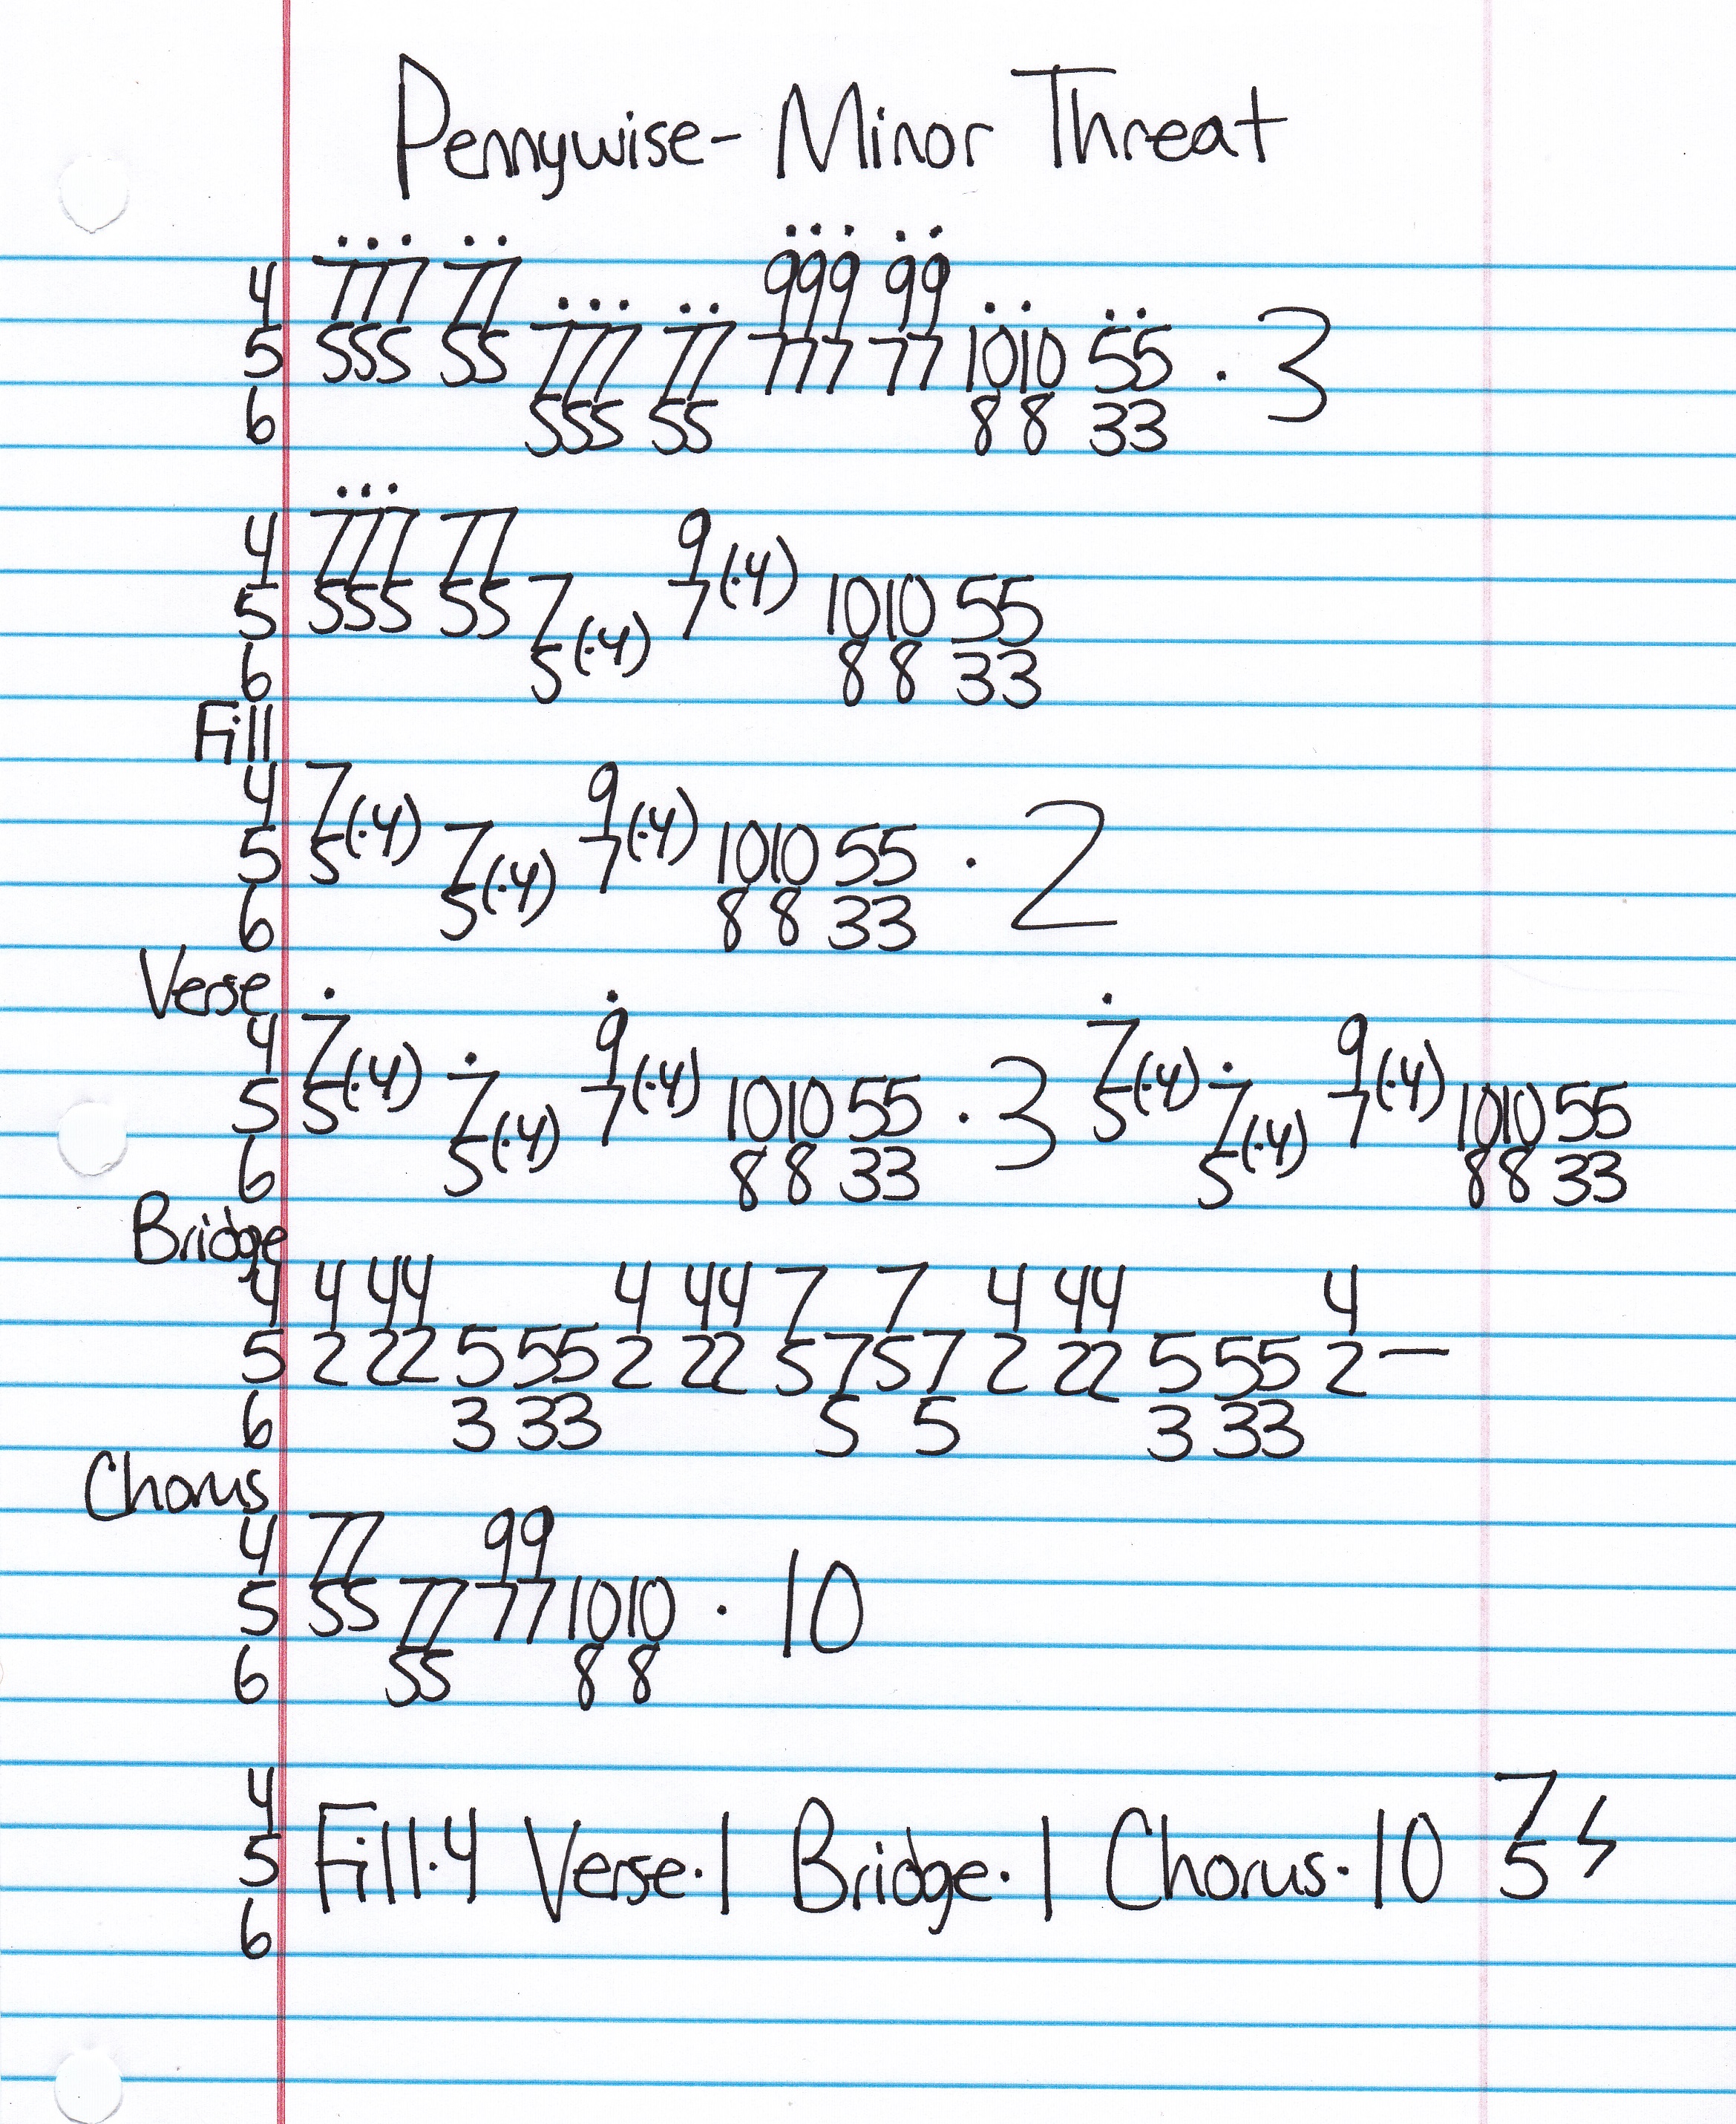 Pennywise- Minor Threat
4 777 77 999 99
5 555 55 777 77 777 77 1010 55 · 3
6 555 55 8 8 33
4 777 77 9
5 555 55 7 7 (·4) 1010 55
6 5 (·4) 8 8 33
Fill
4 7 9
5 5 (·4) 7 7 (·4) 1010 55 · 2
6 5 (·4) 8 8 33
Verse
4 7 9 7 9
5 5 (·4) 7 7 (·4) 1010 55 · 3 5 (·4) 7 7 (·4) 1010 55
6 5 (·4) 8 8 33 5 (·4) 8 8 33
Bridge
4 4 44 4 44 7 7 4 44 4
5 2 22 5 55 2 22 5 7 5 7 2 22 5 55 2 —
6 3 33 5 5 3 33
Chorus
4 77 99
5 55 77 77 1010 · 10
6 55 8 8
4 7
5 Fill·4 Verse·1 Bridge·1 Chorus·10 5
6